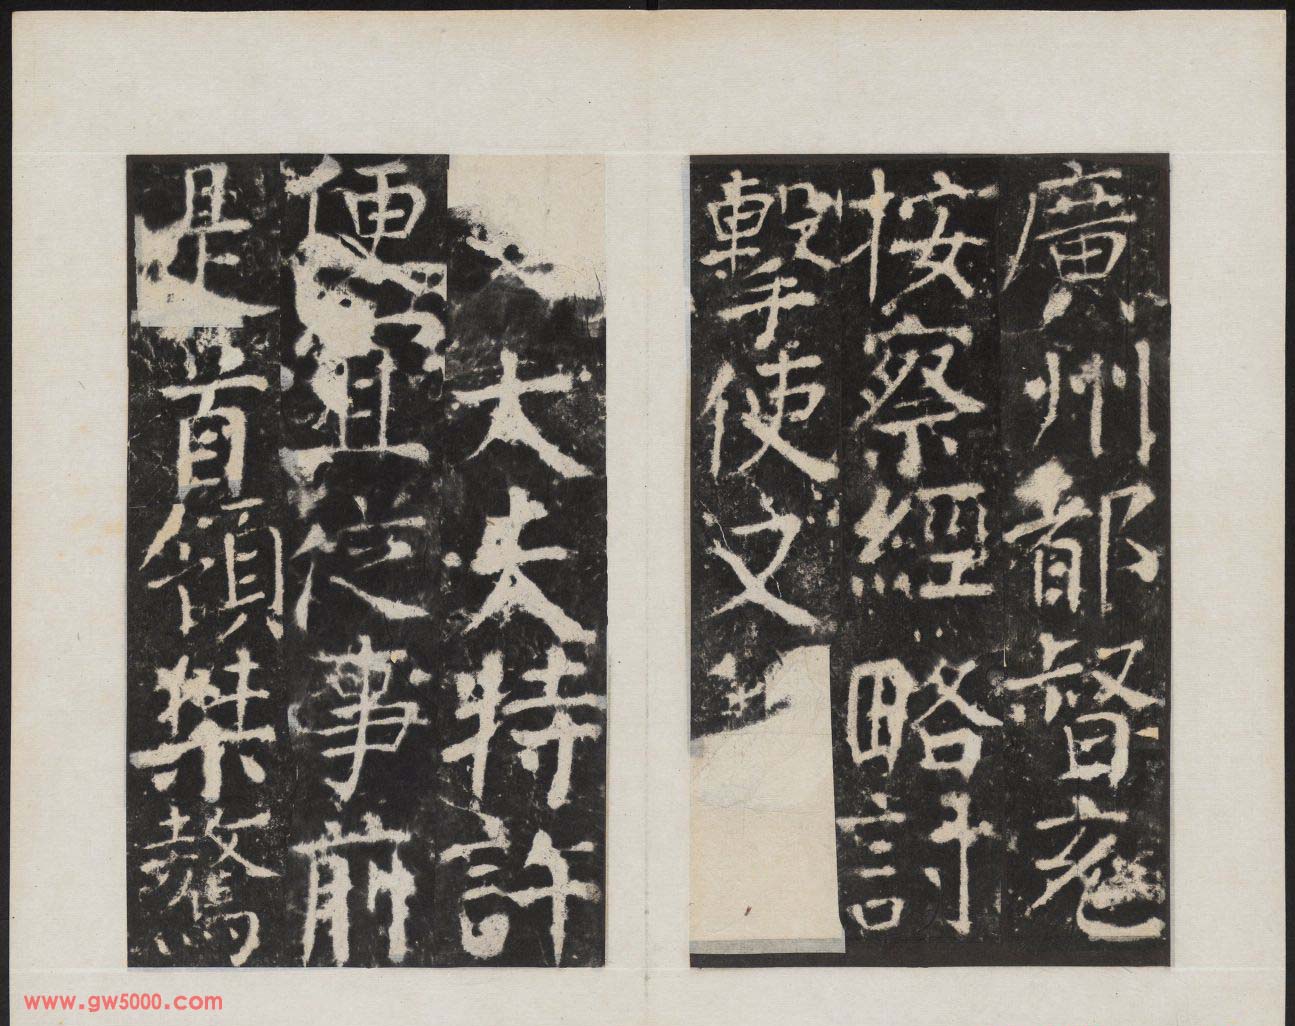 廣州都督充
按察經略討
擊使文
大夫特許
便宜從事前
是首領桀驁
www.gw5000.com